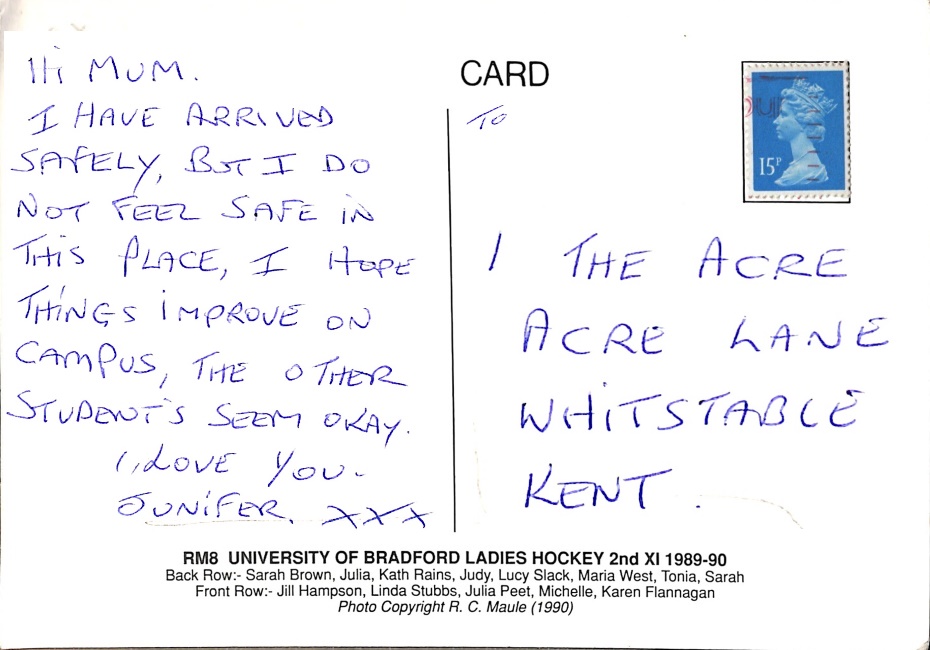 Hi MUM.
I HAVE ARRIVED
SAFELY, BUT I DO
NOT FEEL SAFE IN
THIS PLACE, I HOPE
THINGS IMPROVE ON
CAMPUS, THE OTHER
STUDENT'S SEEM OKAY.
I, LOVE YOU.
JUNIFER. XXX
CARD
TO
15P
1 THE ACRE
ACRE LANE
WHITSTABLE
KENT.
RM8 UNIVERSITY OF BRADFORD LADIES HOCKEY 2nd XI 1989-90
Back Row:- Sarah Brown, Julia, Kath Rains, Judy, Lucy Slack, Maria West, Tonia, Sarah
Front Row:- Jill Hampson, Linda Stubbs, Julia Peet, Michelle, Karen Flannagan
Photo Copyright R. C. Maule (1990)